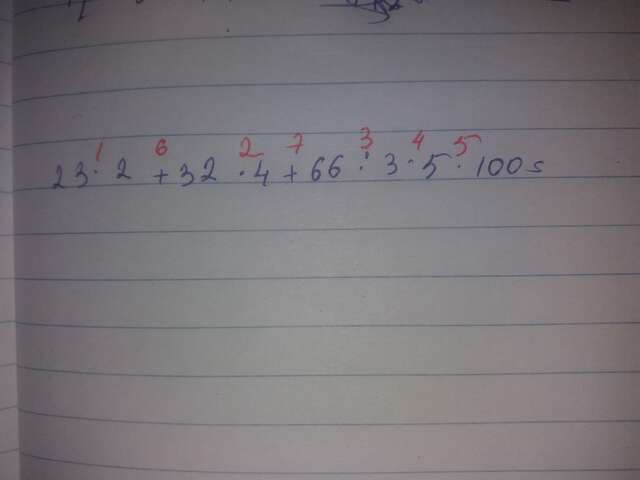 1 6 2 7 3 4 5
23 · 2 + 32 · 4 + 66 : 3 · 5 · 100 =